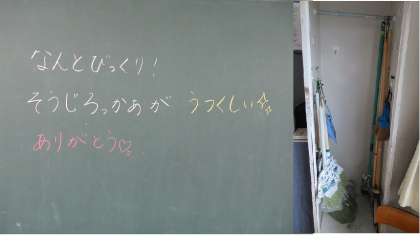 なんとびっくり!
そうじろっかあが うつくしい☆
ありがとう♡